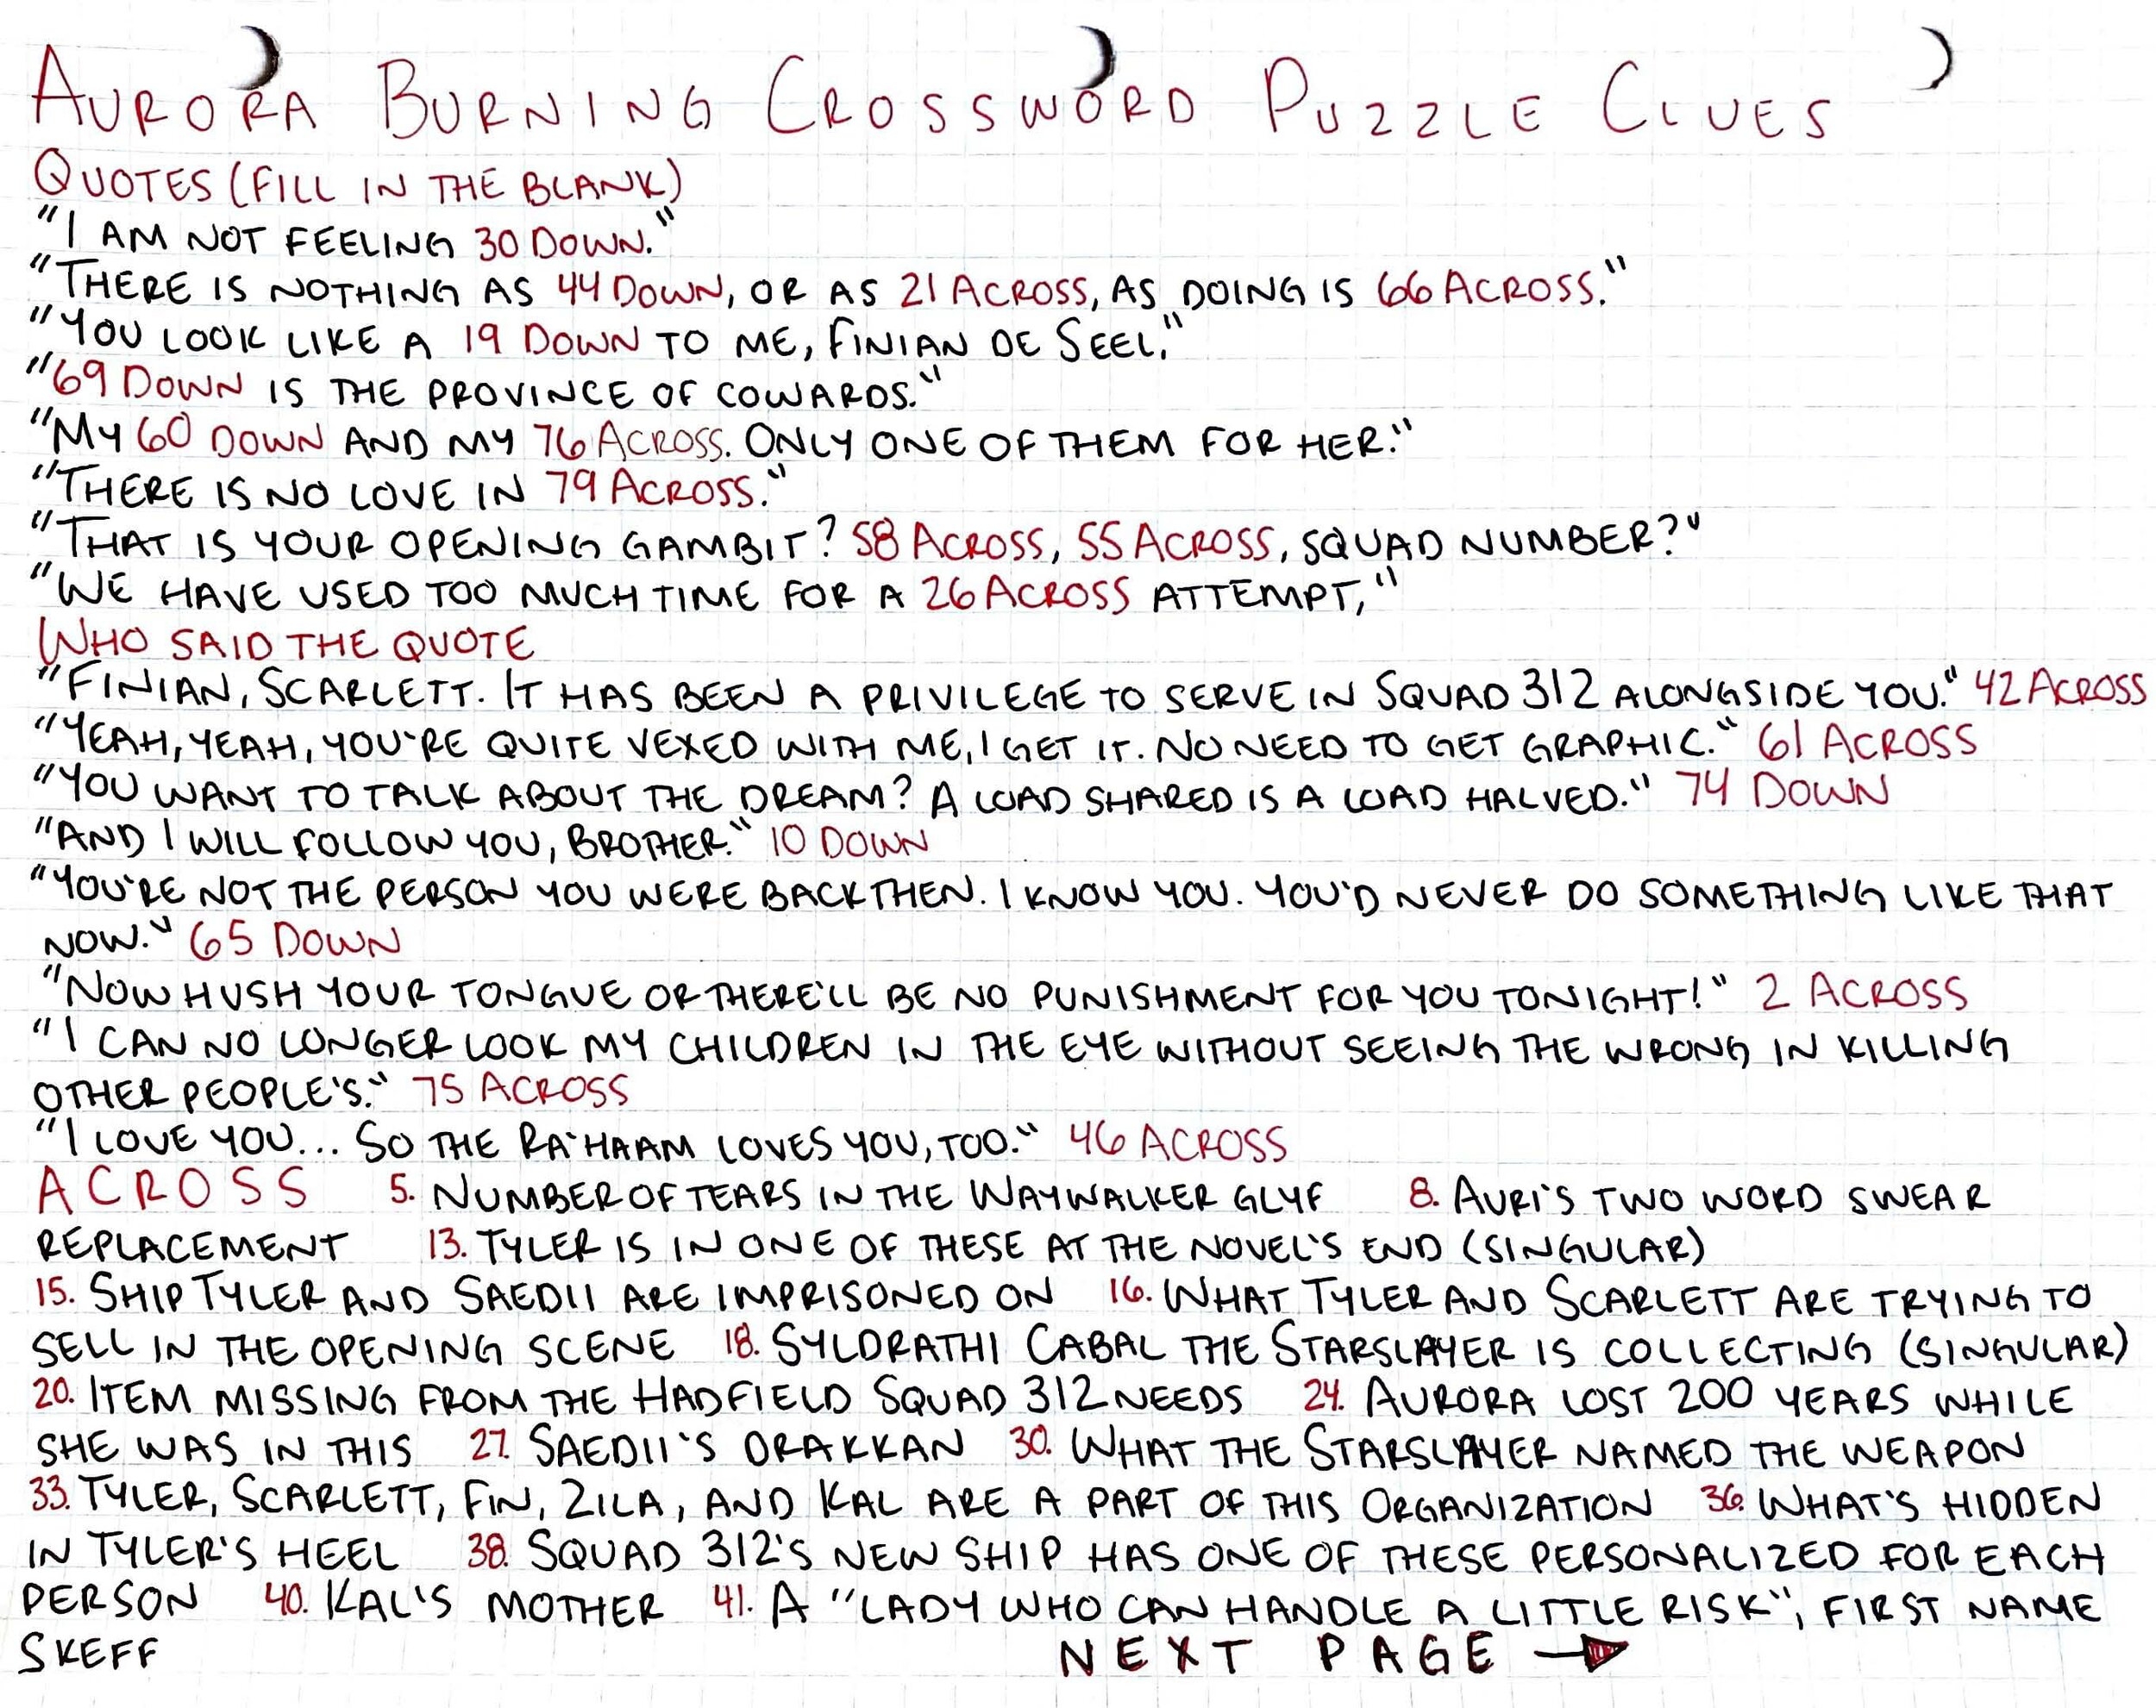 AURORA BURNING CROSSWORD PUZZLE CLUES
QUOTES (FILL IN THE BLANK)
"I AM NOT FEELING 30 DOWN."
"THERE IS NOTHING AS 44 DOWN, OR AS 21 ACROSS, AS DOING IS 66 ACROSS."
"YOU LOOK LIKE A 19 DOWN TO ME, FINIAN DE SEEL."
"69 DOWN IS THE PROVINCE OF COWARDS."
"MY 60 DOWN AND MY 76 ACROSS. ONLY ONE OF THEM FOR HER."
"THERE IS NO LOVE IN 79 ACROSS."
"THAT IS YOUR OPENING GAMBIT? 58 ACROSS, 55 ACROSS, SQUAD NUMBER?"
"WE HAVE USED TOO MUCH TIME FOR A 26 ACROSS ATTEMPT,"
WHO SAID THE QUOTE
"FINIAN, SCARLETT. IT HAS BEEN A PRIVILEGE TO SERVE IN SQUAD 312 ALONGSIDE YOU." 42 ACROSS
"YEAH, YEAH, YOU'RE QUITE VEXED WITH ME, I GET IT. NO NEED TO GET GRAPHIC." 61 ACROSS
"YOU WANT TO TALK ABOUT THE DREAM? A LOAD SHARED IS A LOAD HALVED." 74 DOWN
"AND I WILL FOLLOW YOU, BROTHER." 10 DOWN
"YOU'RE NOT THE PERSON YOU WERE BACK THEN. I KNOW YOU. YOU'D NEVER DO SOMETHING LIKE THAT
NOW." 65 DOWN
"NOW HUSH YOUR TONGUE OR THERE'LL BE NO PUNISHMENT FOR YOU TONIGHT!" 2 ACROSS
"I CAN NO LONGER LOOK MY CHILDREN IN THE EYE WITHOUT SEEING THE WRONG IN KILLING
OTHER PEOPLE'S." 75 ACROSS
"I LOVE YOU... SO THE RA'HAAM LOVES YOU, TOO." 46 ACROSS
ACROSS 5. NUMBER OF TEARS IN THE WAYWALKER GLYF 8. AURI'S TWO WORD SWEAR
REPLACEMENT 13. TYLER IS IN ONE OF THESE AT THE NOVEL'S END (SINGULAR)
15. SHIP TYLER AND SAEDII ARE IMPRISONED ON 16. WHAT TYLER AND SCARLETT ARE TRYING TO
SELL IN THE OPENING SCENE 18. SYLDRATHI CABAL THE STARSLAYER IS COLLECTING (SINGULAR)
20. ITEM MISSING FROM THE HADFIELD SQUAD 312 NEEDS 24. AURORA LOST 200 YEARS WHILE
SHE WAS IN THIS 27. SAEDII'S DRAKKAN 30. WHAT THE STARSLAYER NAMED THE WEAPON
33. TYLER, SCARLETT, FIN, ZILA, AND KAL ARE A PART OF THIS ORGANIZATION 36. WHAT'S HIDDEN
IN TYLER'S HEEL 38. SQUAD 312'S NEW SHIP HAS ONE OF THESE PERSONALIZED FOR EACH
PERSON 40. KAL'S MOTHER 41. A "LADY WHO CAN HANDLE A LITTLE RISK", FIRST NAME
SKEFF NEXT PAGE →